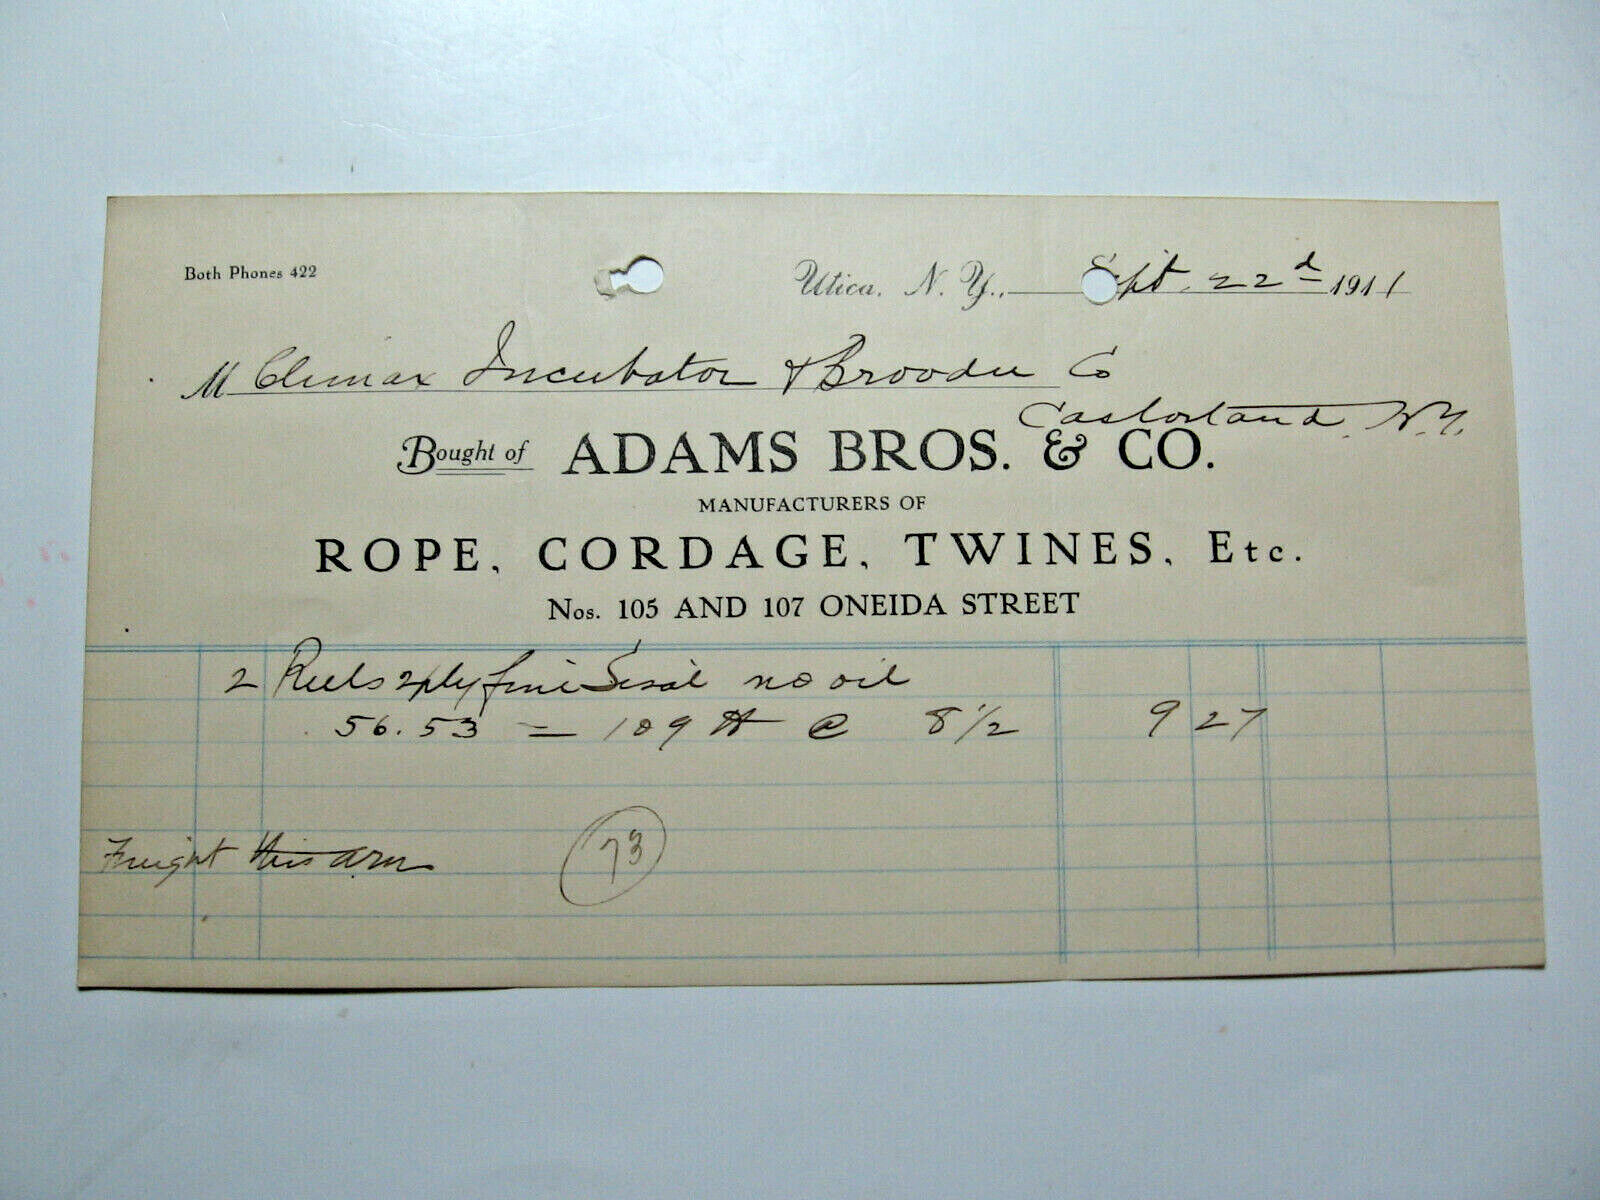 Both Phones 422
Utica, N. Y., Sept. 22d 1911
M Climax Incubator & Brooder Co
Castorland, N.Y.
Bought of ADAMS BROS. & CO.
MANUFACTURERS OF
ROPE, CORDAGE, TWINES, Etc.
Nos. 105 AND 107 ONEIDA STREET
2 Reels 2ply fine Sisal no oil
56.53 = 109 # @ 8 1/2 9 27
Freight
73